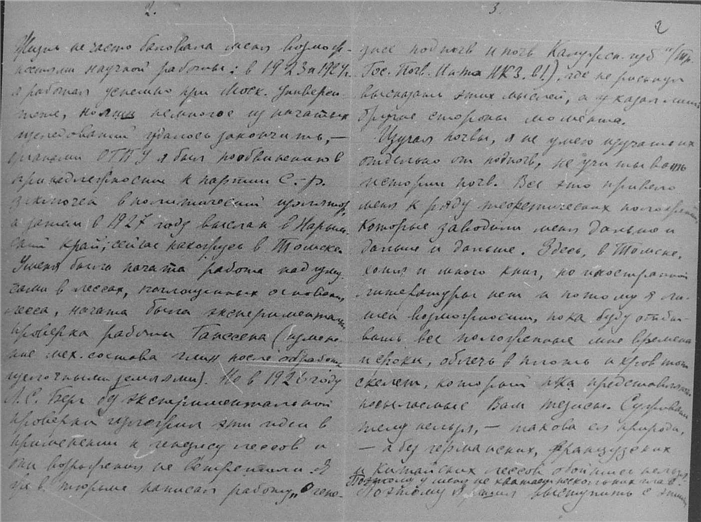 2.
Жизнь не часто баловала меня возмож-
ностями научной работы: в 1923 и 1924 г.
я работал успешно при Моск. Универси-
тете, но немногое из начатых
исследований удалось закончить, –
органами ОГПУ я был по обвинению в
принадлежности к партии С.-р.
заключен в политический изолятор,
а затем в 1927 году выслан в Нарым-
ский край; сейчас нахожусь в Томске.
У меня была начата работа над
в лессах, поглощенных основан.
лесса, начата была эксперимента
проверка работы Ганссена (измене-
ние мех. состава глин после обработки
щелочными землями). Но в 192 году
Л.С. Берг без экспериментальной
проверки эти идеи в
применении к генезису лессов и
они возражения не встретили. Я
в тюрьме написал работу „О гене-
3.
2
зисе подпочв и почв Калужск. губ."
Гос. Почв. Ин-та НКЗ. ), где не рискнул
высказать этих мыслей, а указал лишь
другие стороны момента.
Изучая почвы, я не умею изучать их
отдельно от подпочв, не учитывать
истории почв. Все это привело
меня к ряду теоретических положений,
которые заводили меня дальше и
дальше и дальше. Здесь, в Томске,
хотя и много книг, но иностранной
литературы нет и потому я ли-
шен возможности, пока буду отбы-
вать все положенные мне времена
и сроки, облечь в плоть и кровь тот
скелет, который представляют
посылаемые Вам тезисы.
нельзя, – такова его природа,
– а без германских, французских
и китайских лессов обойтись нельзя.
Поэтому у меня не хватает нескольких глав.
Поэтому я выступить с этими